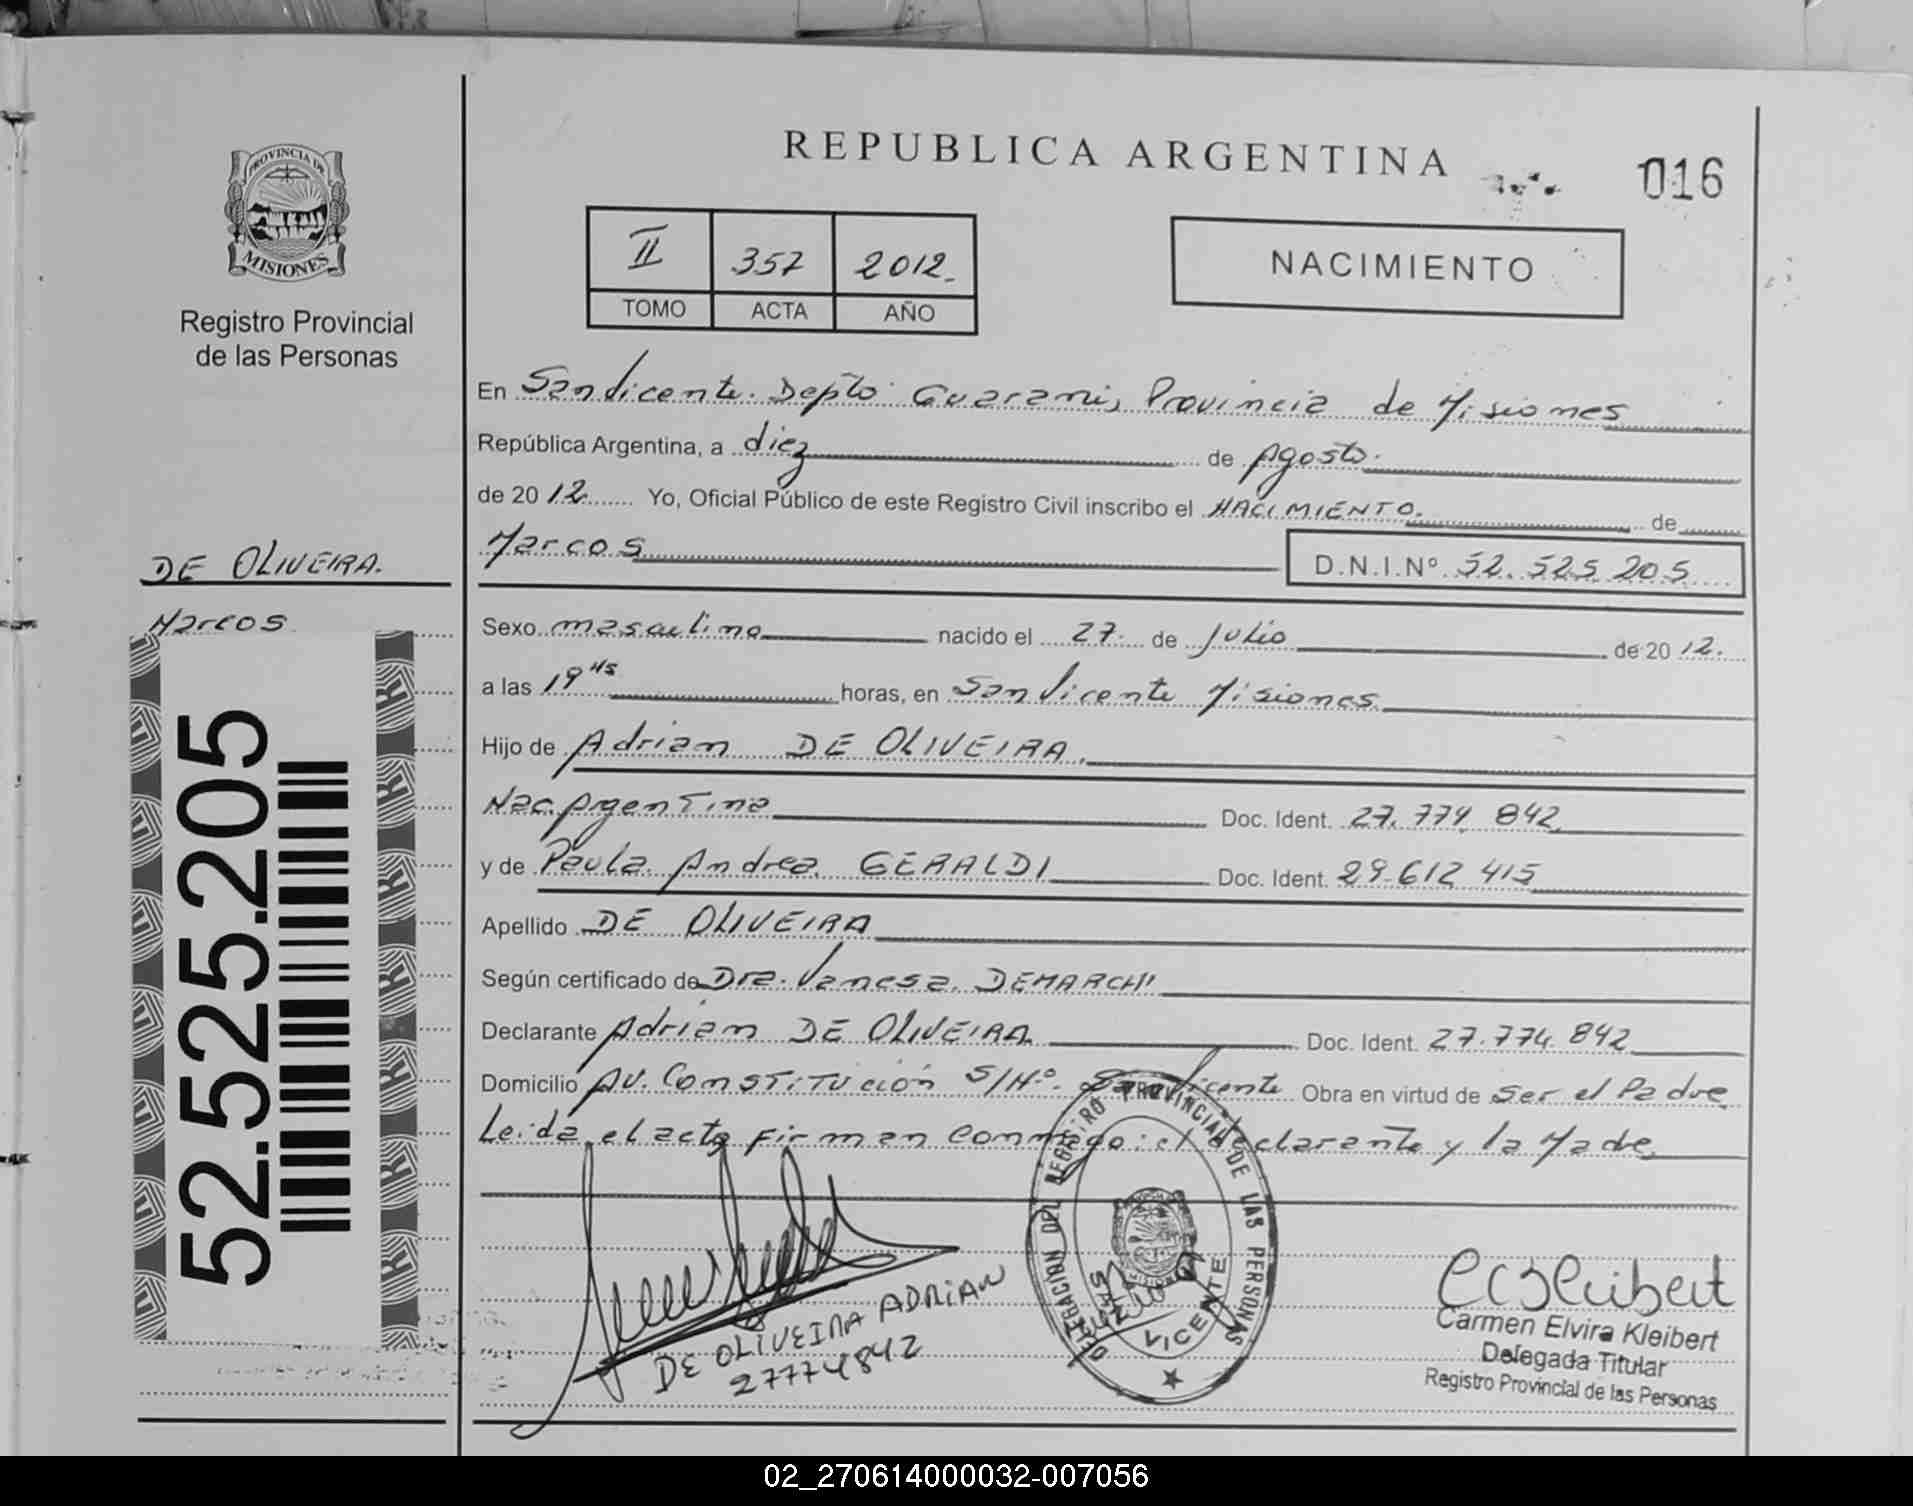 REPUBLICA ARGENTINA
016
PROVINCIA DE
MISIONES
Registro Provincial
de las Personas
II 357 2012.
TOMO ACTA AÑO
NACIMIENTO
En San Vicente. Depto Guarani, Provincia de Misiones
República Argentina, a diez de Agosto.
de 20 12. Yo, Oficial Público de este Registro Civil inscribo el NACIMIENTO. de
Marcos D.N.I.Nº 52.525 205
DE OLIVEIRA.
Marcos
52.525.205
Sexo masculino nacido el 27. de Julio de 20 12.
a las 19 45 horas, en San Vicente Misiones.
Hijo de Adrian DE OLIVEIRA.
Nac. Argentina Doc. Ident. 27.774 842
y de Paula Andrea GERALDI Doc. Ident. 29.612 415
Apellido DE OLIVEIRA
Según certificado de Dra. Vanesa DEMARCHI
Declarante Adrian DE OLIVEIRA Doc. Ident. 27.774.842
Domicilio AV. Constitución S/Nº. San Vicente Obra en virtud de ser el Padre
Leida el acta firman conmigo: el declarante y la Madre.
DELEGACION DEL REGISTRO PROVINCIAL DE LAS PERSONAS
SAN VICENTE
DE OLIVEIRA ADRIAN
27774842
Carmen Elvira Kleibert
Delegada Titular
Registro Provincial de las Personas
02_270614000032-007056